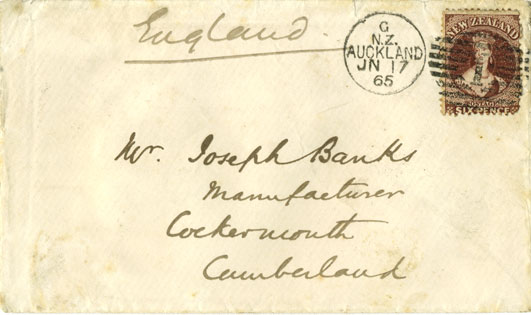 England.
G
N.Z.
AUCKLAND
JN 17
65
NEW ZEALAND
POSTAGE
SIXPENCE
Mr. Joseph Banks
Manufacturer
Cockermouth
Cumberland